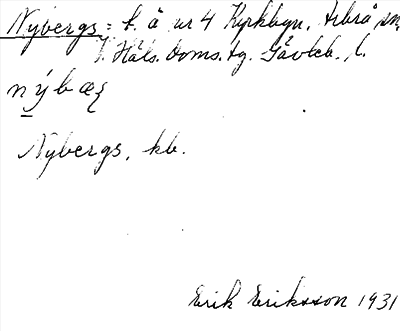 Nybergs: t. å ur 4 Kyrkbyn, Arbrå sn,
V. Häls. doms. tg. Gävleb. l.
nýbæʒ
Nybergs, kb.
Erik Eriksson 1931